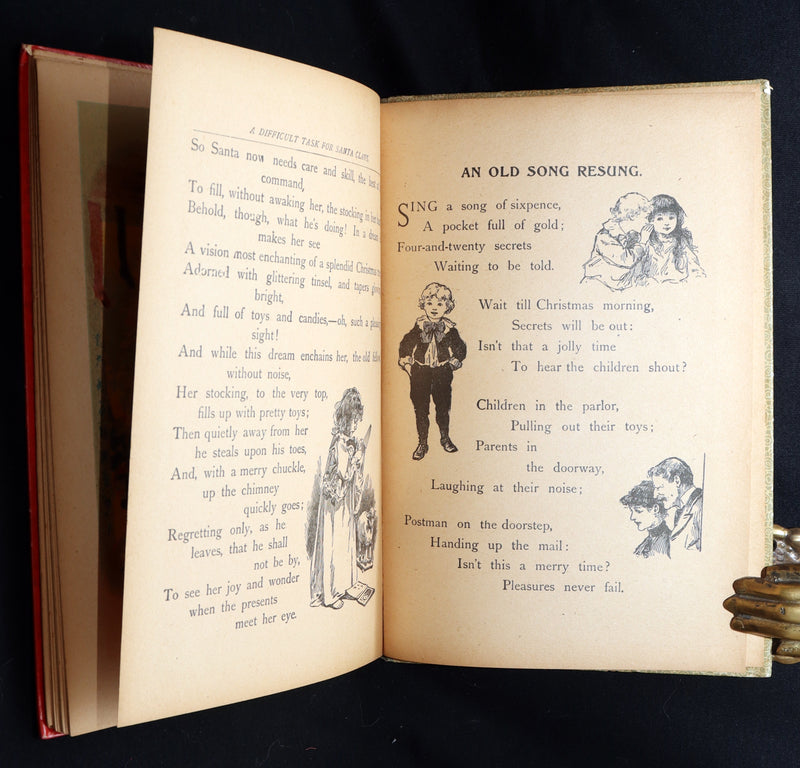 A DIFFICULT TASK FOR SANTA CLAUS.
So Santa now needs care and skill, the best
command,
To fill, without awaking her, the stocking in her
Behold, though, what he's doing! In a dream
makes her see
A vision most enchanting of a splendid Christmas
Adorned with glittering tinsel, and tapers
bright,
And full of toys and candies,—oh, such a
sight!
And while this dream enchains her, the old
without noise,
Her stocking, to the very top,
fills up with pretty toys;
Then quietly away from her
he steals upon his toes,
And, with a merry chuckle,
up the chimney
quickly goes;
Regretting only, as he
leaves, that he shall
not be by,
To see her joy and wonder
when the presents
meet her eye.
AN OLD SONG RESUNG.
SING a song of sixpence,
A pocket full of gold;
Four-and-twenty secrets
Waiting to be told.
Wait till Christmas morning,
Secrets will be out:
Isn't that a jolly time
To hear the children shout?
Children in the parlor,
Pulling out their toys;
Parents in
the doorway,
Laughing at their noise;
Postman on the doorstep,
Handing up the mail:
Isn't this a merry time?
Pleasures never fail.